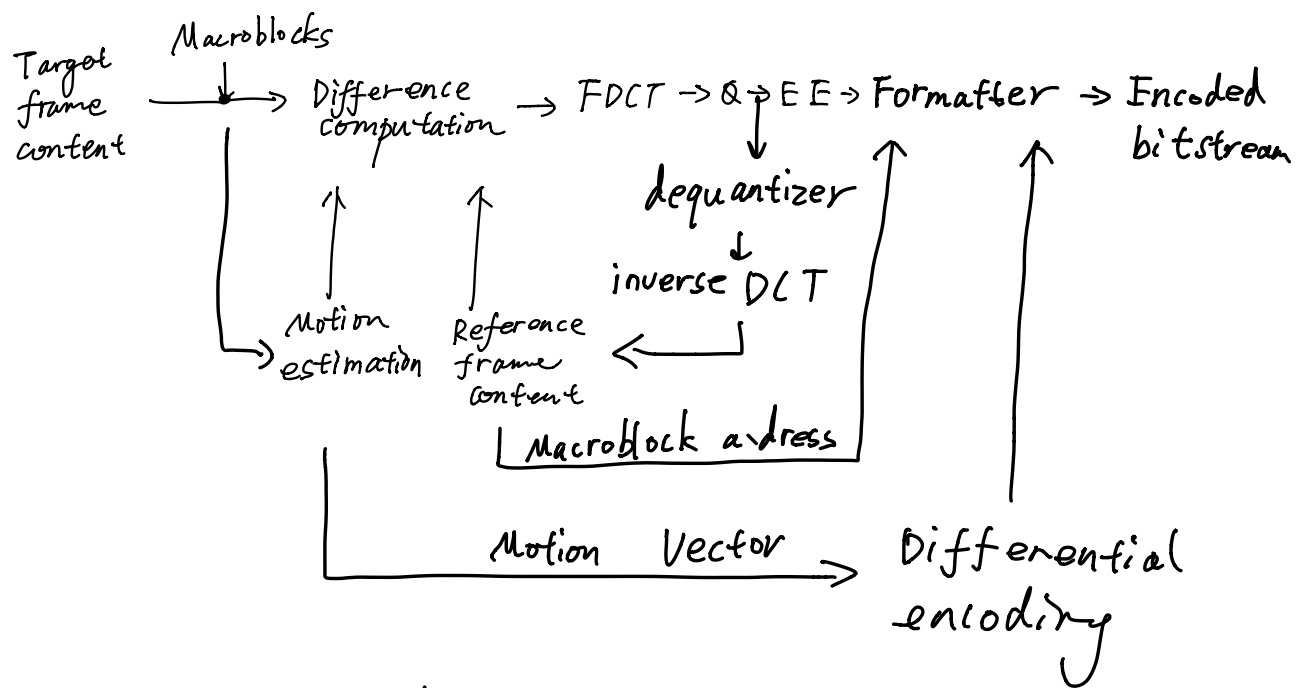 Macroblocks
Target
frame
content
Difference
computation
FDCT → Q → E E → Formatter → Encoded
bitstream
dequantizer
inverse DCT
Motion
estimation
Reference
frame
content
Macroblock address
Motion Vector
Differential
encoding